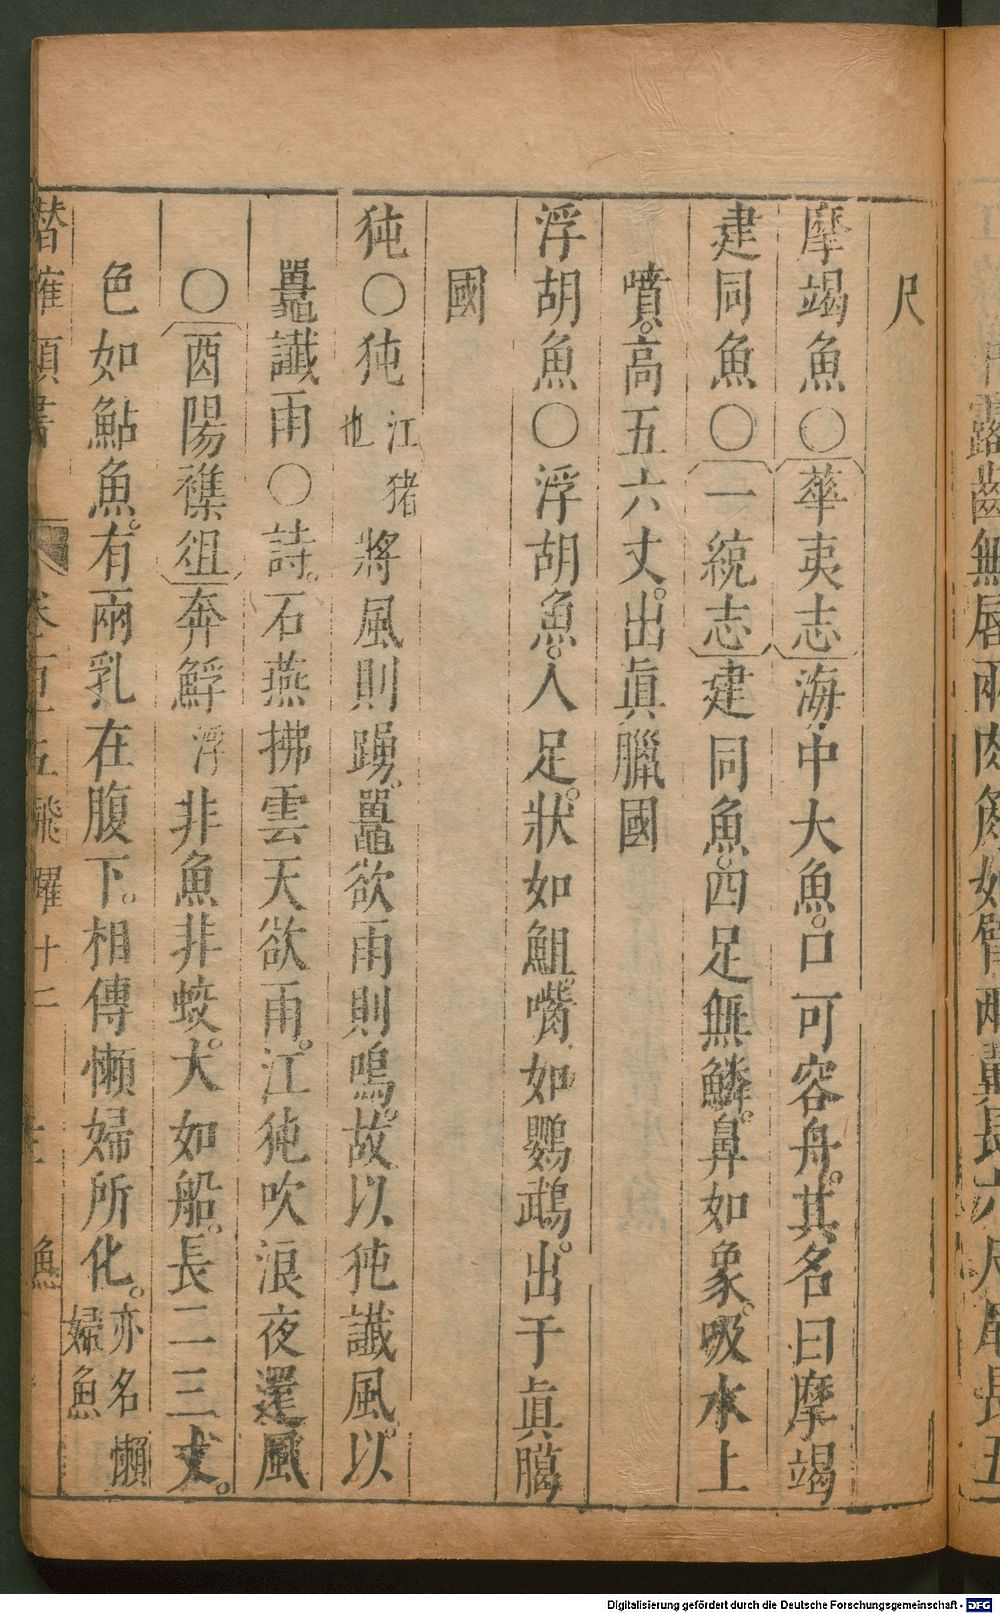 尺
摩竭魚○華夷志海中大魚。口可容舟。其名曰摩竭
建同魚○一統志建同魚。四足無鱗。鼻如象。吸水上
噴。高五六丈。出眞臘國
浮胡魚○浮胡魚。人足。狀如䱉。嘴如鸚鵡。出于眞臈
國
㹠○㹠江猪也將風則踴。鼉欲雨則鳴。故以㹠讖風。以
鼉讖雨○詩。石燕拂雲天欲雨。江㹠吹浪夜還風
○酉陽襍俎奔䱐浮非魚非蛟。大如船。長二三丈。
色如鮎魚。有兩乳在腹下。相傳懶婦所化。亦名懶婦魚
潛確類書 卷百十五飛躍十二 魚
Digitalisierung gefördert durch die Deutsche Forschungsgemeinschaft - DFG